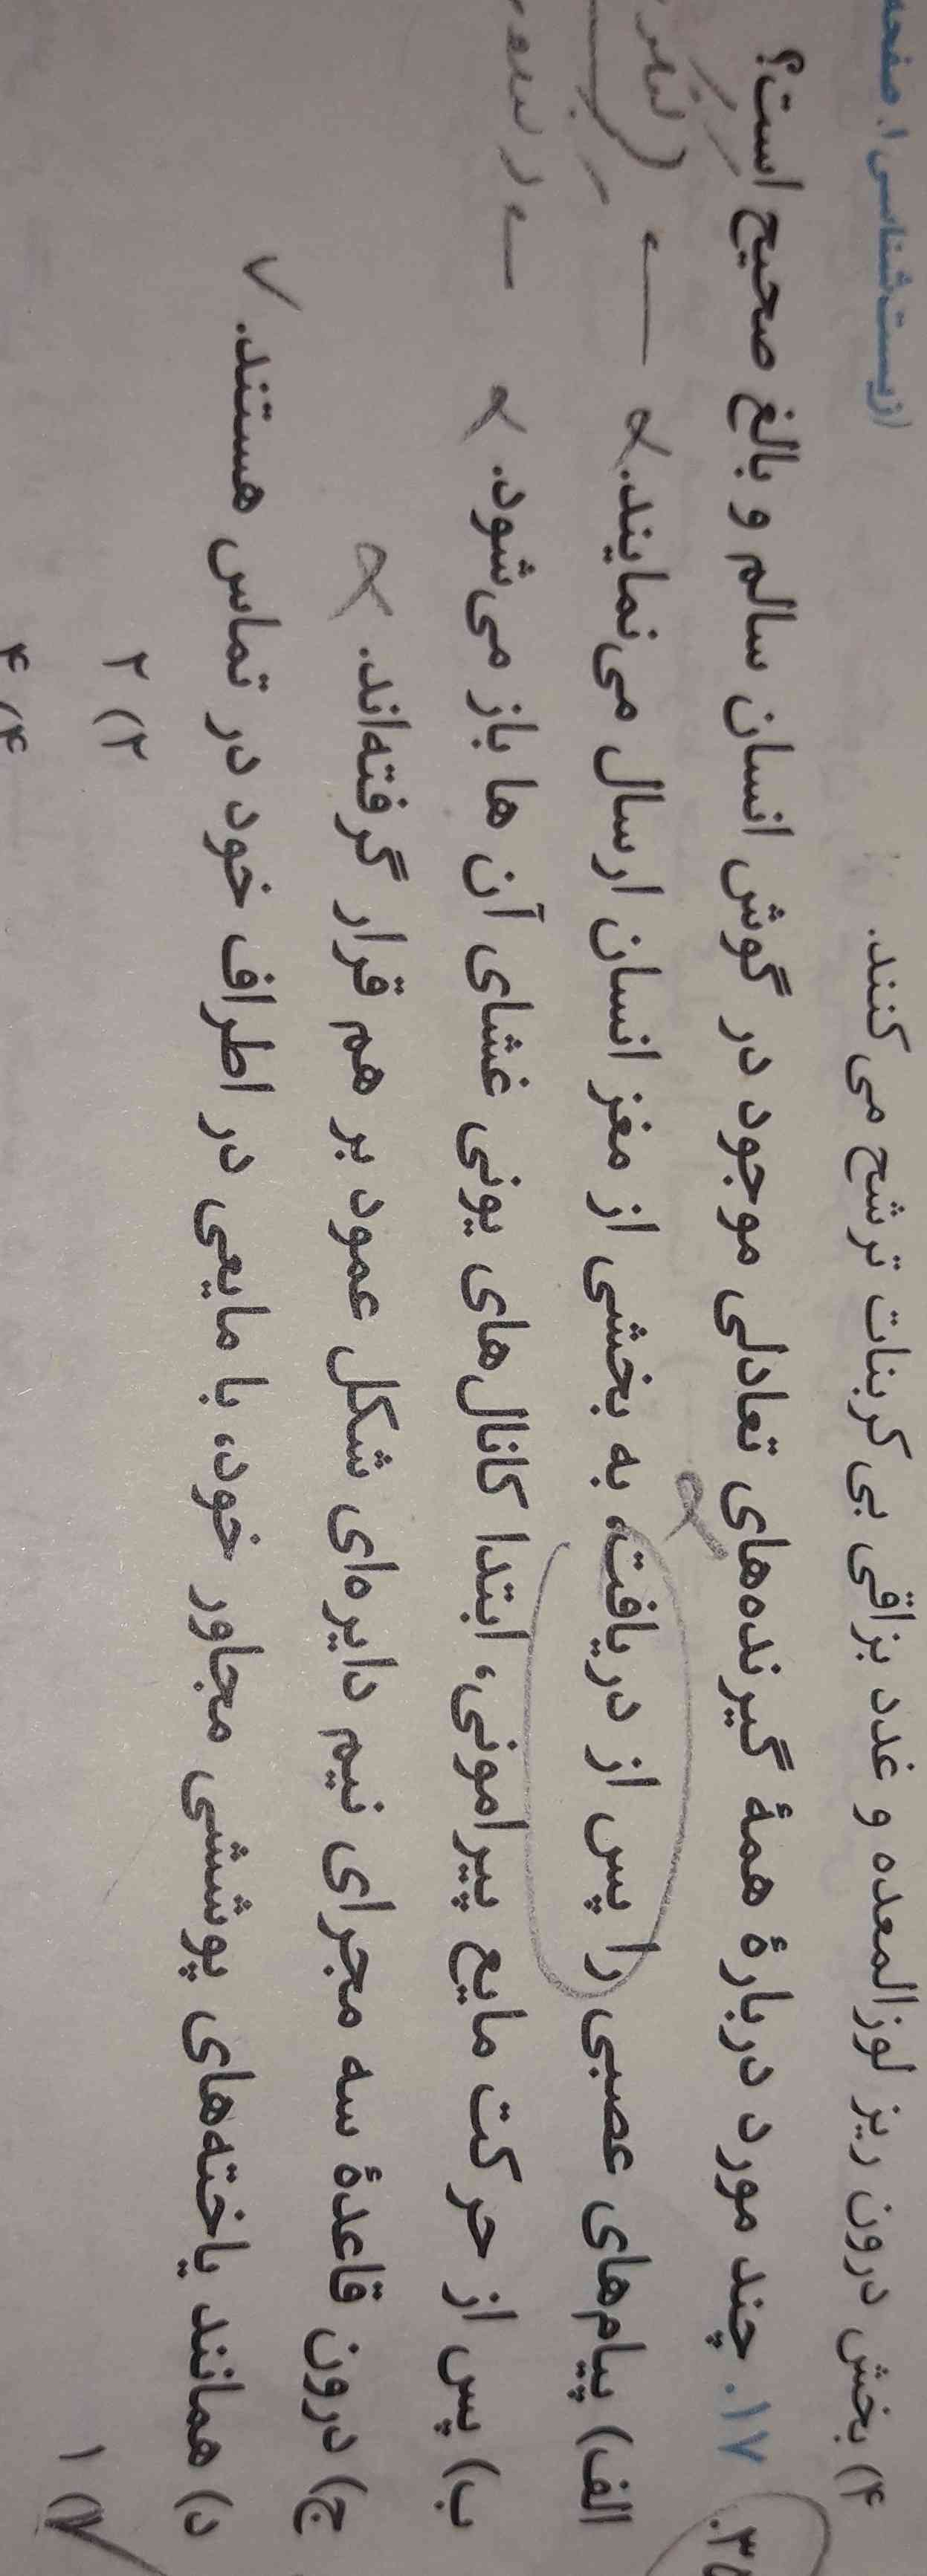 (زیست‌شناسی ۱، صفحه
۴) بخش درون ریز لوزالمعده و غدد بزاقی بی‌کربنات ترشح می‌کنند.
۱۷. چند مورد دربارهٔ همهٔ گیرنده‌های تعادلی موجود در گوش انسان سالم و بالغ صحیح است؟
الف) پیام‌های عصبی را پس از دریافت، به بخشی از مغز انسان ارسال می‌نمایند.
ب) پس از حرکت مایع پیرامونی، ابتدا کانال‌های یونی غشای آن ها باز می‌شود.
ج) درون قاعدهٔ سه مجرای نیم دایره‌ای شکل عمود بر هم قرار گرفته‌اند.
د) همانند یاخته‌های پوششی مجاور خود، با مایعی در اطراف خود در تماس هستند.
۱) ۱
۲) ۲
۴) ۴